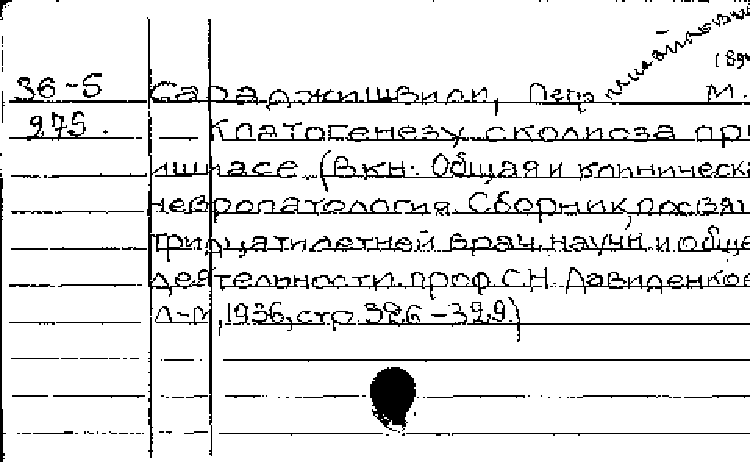 Михайлович
(894
36-5 Сараджишвили, Петр М.
275. К патогенезу сколиоза при
ишиасе. (В кн: Общая и клиническа
невропатология. Сборник, посвящ
тридцатилетней врач. научн. и обще
деятельности проф. С.Н. Давиденков
Л-М, 1936, стр. 326-329.)